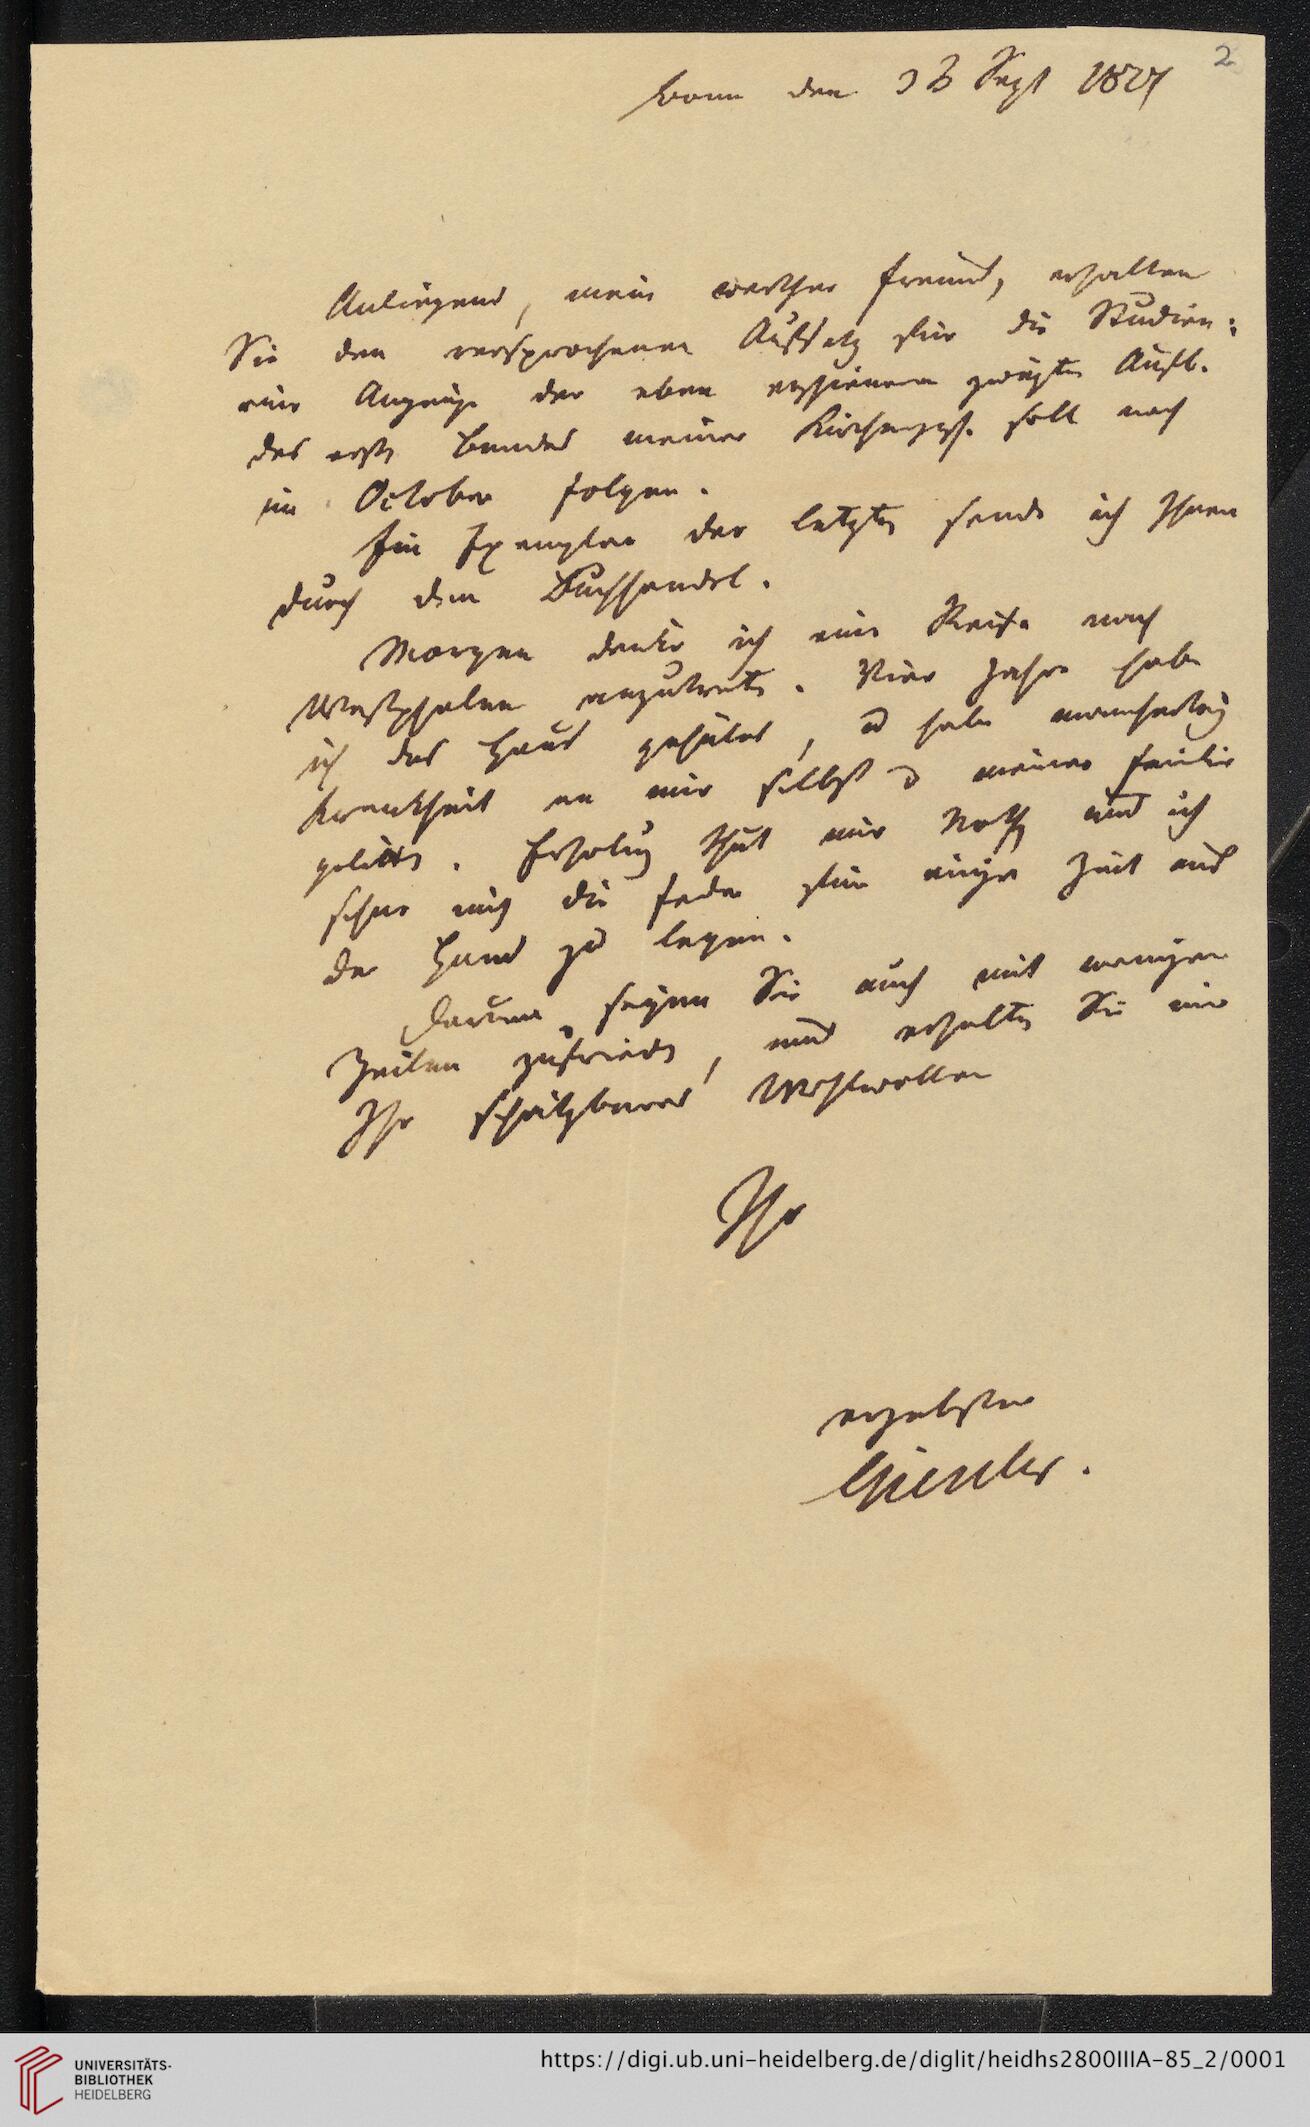 2
Bonn den Sept 1827
Anliegend, mein werther Freund, erhalten
Sie den versprochenen Aufsatz für die Studien:
eine Anzeige der eben erschienenen zweyten Aufl.
des ersten Bandes meiner Kirchengesch. soll noch
im October folgen.
Ein Exemplar der letzten sende ich Ihnen
durch den Buchhandel.
Morgen denke ich eine Reise nach
Westphalen anzutreten. Vier Jahre habe
ich das Haus gehütet, u habe mannherley
Krankheit an mir selbst u meiner Familie
gelitten. Erholung thut mir Noth und ich
sehne mich die Feder für einige Zeit aus
der Hand zu legen.
Darum seyen Sie auch mit wenigen
Zeilen zufrieden, und erhalten Sie mir
Ihr schätzbares Wohlwollen
Ihr
ergebenster
Gieseler.
UNIVERSITÄTS-
BIBLIOTHEK
HEIDELBERG
https://digi.ub.uni-heidelberg.de/diglit/heidhs2800IIIA-85_2/0001